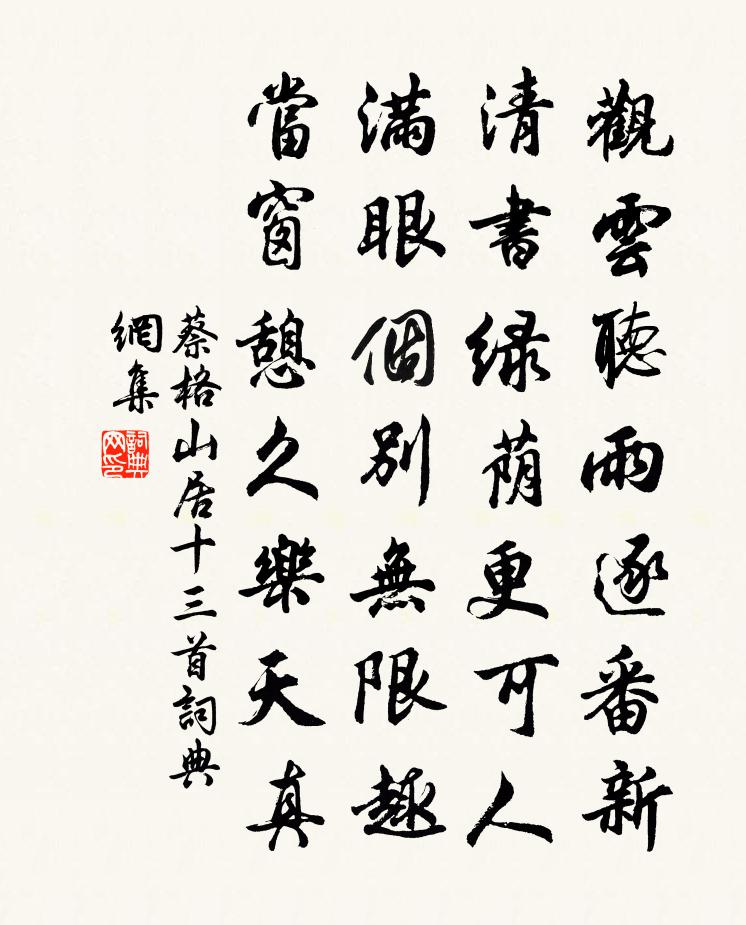 觀雲聽雨逐番新
清書緑蔭更可人
滿眼個別無限趣
當窗憩久樂天真
蔡格山居十三首詞典
網集
詞典
网印